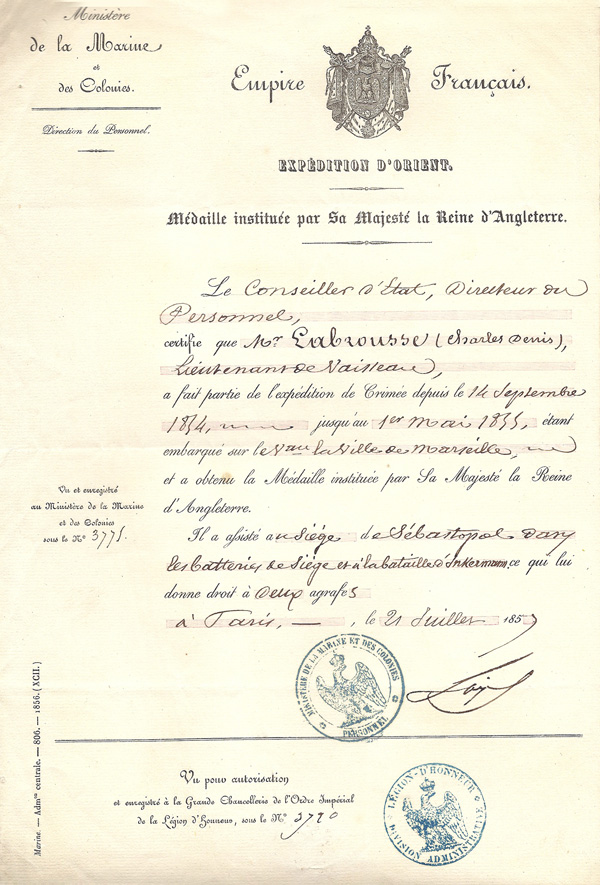 Ministère
de la Marine
et
des Colonies.
Direction du Personnel.
Empire Français.
EXPÉDITION D'ORIENT.
Médaille instituée par Sa Majesté la Reine d'Angleterre.
Le Conseiller d'État, Directeur du
Personnel,
certifie que Mr. Labrousse (Charles Denis),
Lieutenant de Vaisseau,
a fait partie de l'expédition de Crimée depuis le 14 Septembre
1854, jusqu'au 1er Mai 1855, étant
embarqué sur le Vau la Ville de Marseille,
et a obtenu la Médaille instituée par Sa Majesté la Reine
d'Angleterre.
Il a assisté au Siége de Sébastopol dans
les batteries de Siége et à la bataille d'Inkermann ce qui lui
donne droit à Deux agrafes
à Paris, le 21 Juillet 1857
Vu et enregistré
au Ministère de la Marine
et des Colonies
sous le No 3775.
MINISTÈRE DE LA MARINE ET DES COLONIES
PERSONNEL
Marine. — Adm.on centrale. — 800. — 1856. (XCII.)
Vu pour autorisation
et enregistré à la Grande Chancellerie de l'Ordre Impérial
de la Légion d'Honneur, sous le No 3720
LÉGION-D'HONNEUR
DIVISION ADMINISTRATIVE